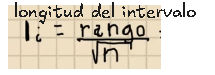 longitud del intervalo
li = rango
√n